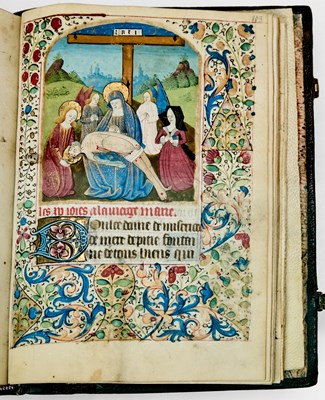 INRI
les xv ioies a la vierge marie.
Doulce dame de misericor
de mere de pitie fontai
ne de tous biens qui